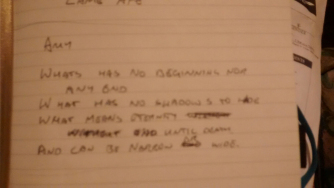 AMY
WHATS HAS NO BEGINNING NOR
ANY END
WHAT HAS NO SHADOWS TO HIDE
WHAT MEANS ETERNITY
UNTIL DEATH
AND CAN BE NARROW OR WIDE.